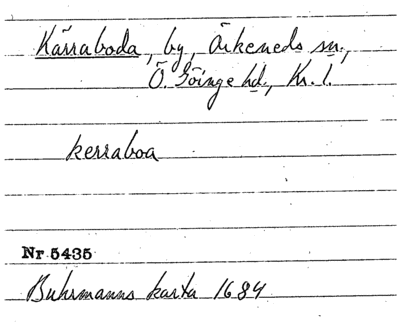 Kärraboda, by, Örkeneds sn.,
Ö. Göinge hd., Kr. l.
kerraboa
Nr 5435
Buhrmanns karta 1684